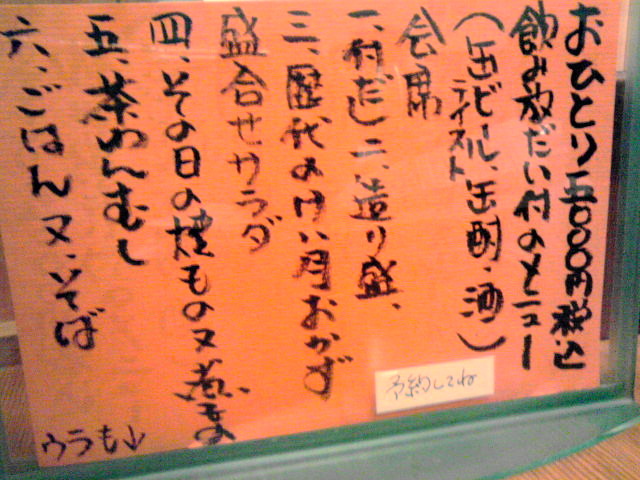 おひとり五〇〇〇円税込
飲み放だい付のメニュー
(缶ビール、缶酎、酒)
テイスト
会席
一、付だし 二、造り盛、
三、歴代のけい月おかず
盛合せサラダ
四、その日の焼もの又煮もの
五、茶わんむし
六、ごはん又、そば
ウラも↓
予約してね